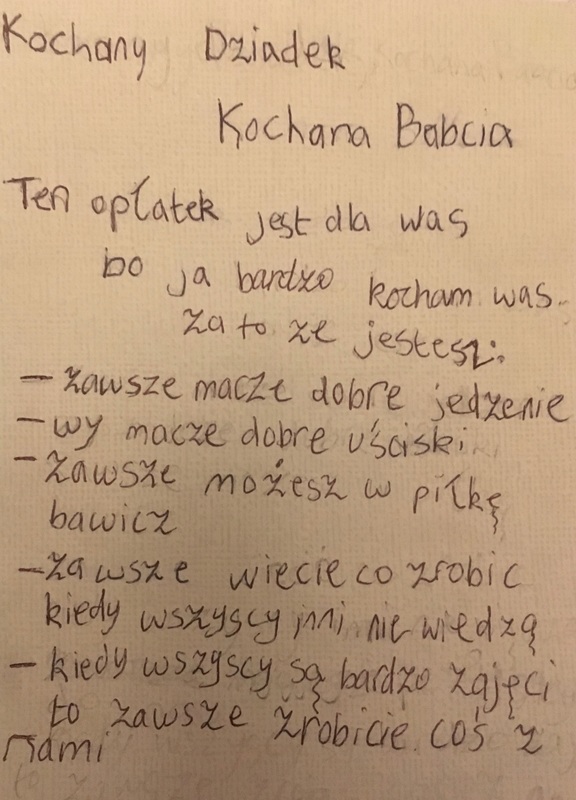 Kochany Dziadek
Kochana Babcia
Ten opłatek jest dla was
bo ja bardzo kocham was.
za to ze jestesz:
- zawsze macze dobre jedzenie
- wy macze dobre uściski
- zawsze możesz w piłkę
bawicz
- zawsze wiecie co zrobic
kiedy wszyscy inni nie wiedzą
- kiedy wszyscy są bardzo zajęci
to zawsze zrobicie coś z
nami